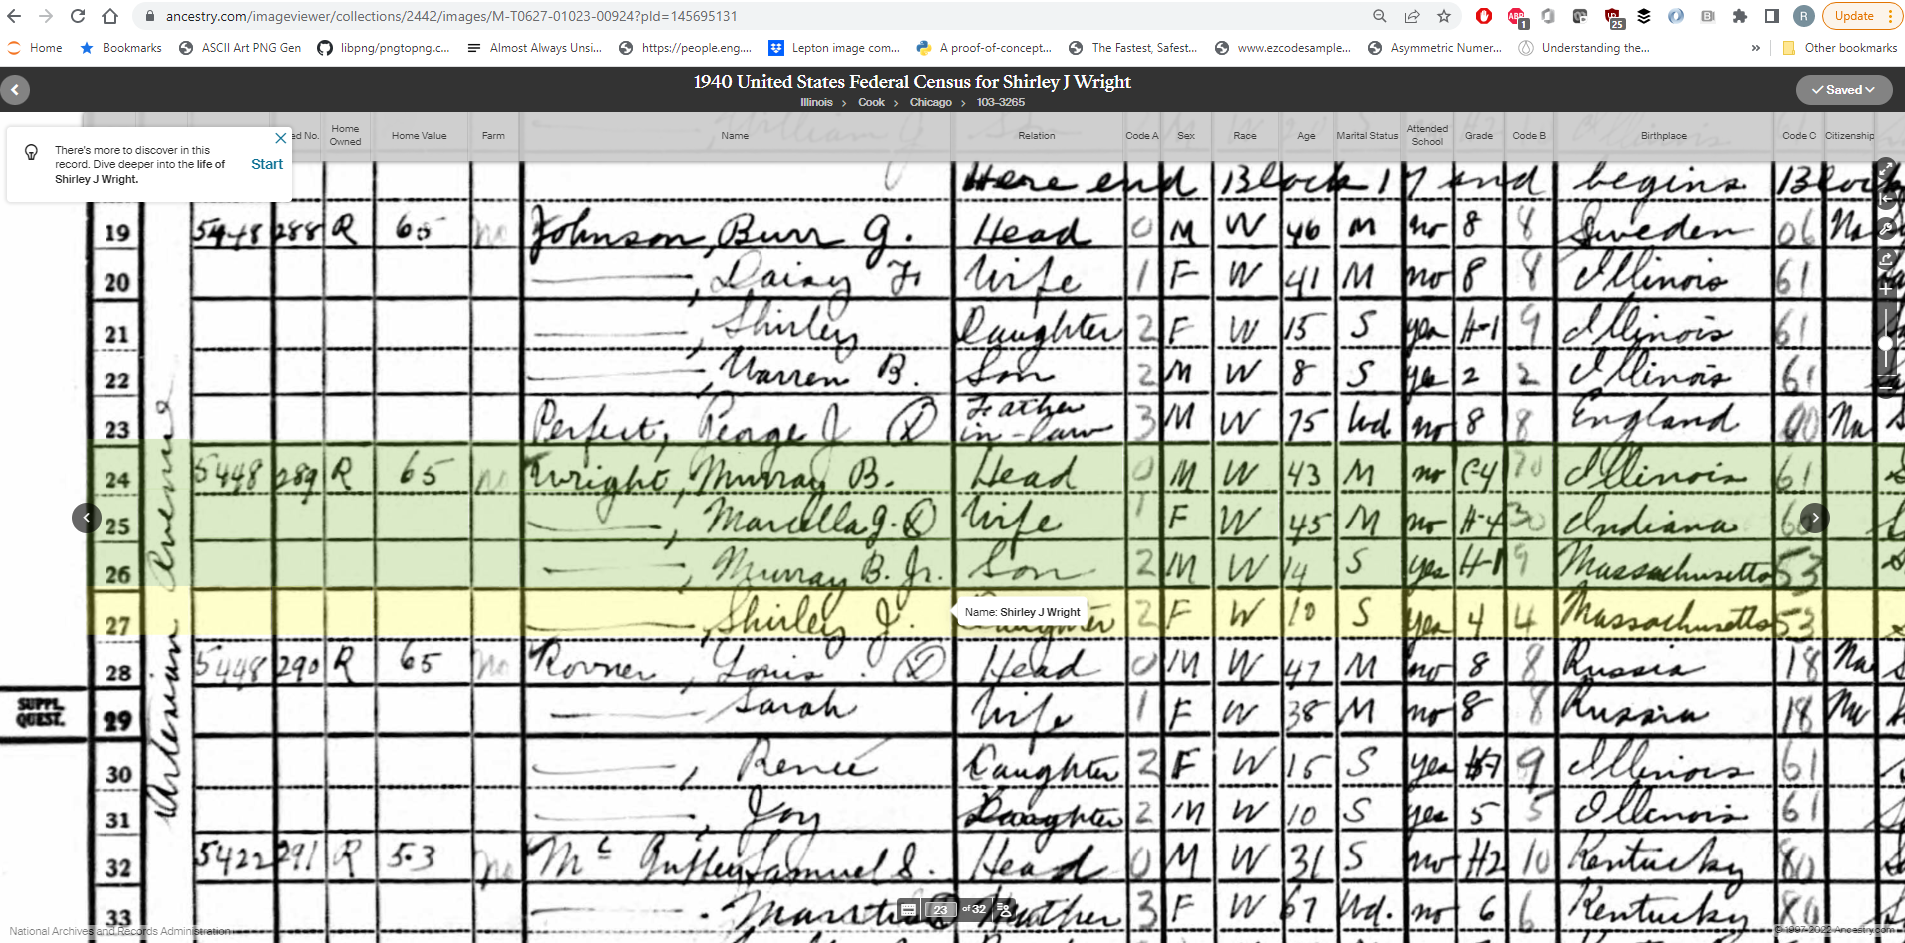 ancestry.com/imageviewer/collections/2442/images/M-T0627-01023-00924?pId=145695131
1
25
R
Update
Home Bookmarks ASCII Art PNG Gen libpng/pngtopng.c... Almost Always Unsi... https://people.eng.... Lepton image com... A proof-of-concept... The Fastest, Safest... www.ezcodesample... Asymmetric Numer... Understanding the... » Other bookmarks
1940 United States Federal Census for Shirley J Wright
Illinois > Cook > Chicago > 103-3265
Saved
ed No. Home Owned Home Value Farm Name Relation Code A Sex Race Age Marital Status Attended School Grade Code B Birthplace Code C Citizenship
There's more to discover in this
record. Dive deeper into the life of
Shirley J Wright.
Start
Here end Block 17 and begins Block
19 5448 288 R 65 no Johnson, Burr G. Head 0 M W 46 M no 8 8 Sweden 06 Na
20 , Daisy F. Wife 1 F W 41 M no 8 8 Illinois 61
21 , Shirley Daughter 2 F W 15 S yes H-1 9 Illinois 61
22 , Warren B. Son 2 M W 8 S yes 2 2 Illinois 61
23 Perfect, George J Father in-law 3 M W 75 Wd. no 8 8 England 00 Na
24 5448 289 R 65 no Wright, Murray B. Head 0 M W 43 M no C-4 70 Illinois 61
25 , Marcella G. Wife 1 F W 45 M no H-4 30 Indiana 60
26 , Murray B. Jr. Son 2 M W 14 S yes H-1 9 Massachusetts 53
27 , Shirley J. Daughter 2 F W 10 S yes 4 4 Massachusetts 53
Name: Shirley J Wright
28 5448 290 R 65 no Rovner, Louis Head 0 M W 47 M no 8 8 Russia 18 Na
SUPPL. QUEST.
29 Sarah Wife 1 F W 38 M no 8 8 Russia 18 Na
30 , Renee Daughter 2 F W 15 S yes 9 Illinois 61
31 , Joy Daughter 2 M W 10 S yes 5 5 Illinois 61
32 5422 291 R 53 no Samuel S. Head 0 M W 31 S no H2 10 Kentucky 80
33 Mother 3 F W 67 Wd. no 6 6 Kentucky 80
Artesian Avenue
23 of 32
National Archives and Records Administration
©1997-2022 Ancestry.com